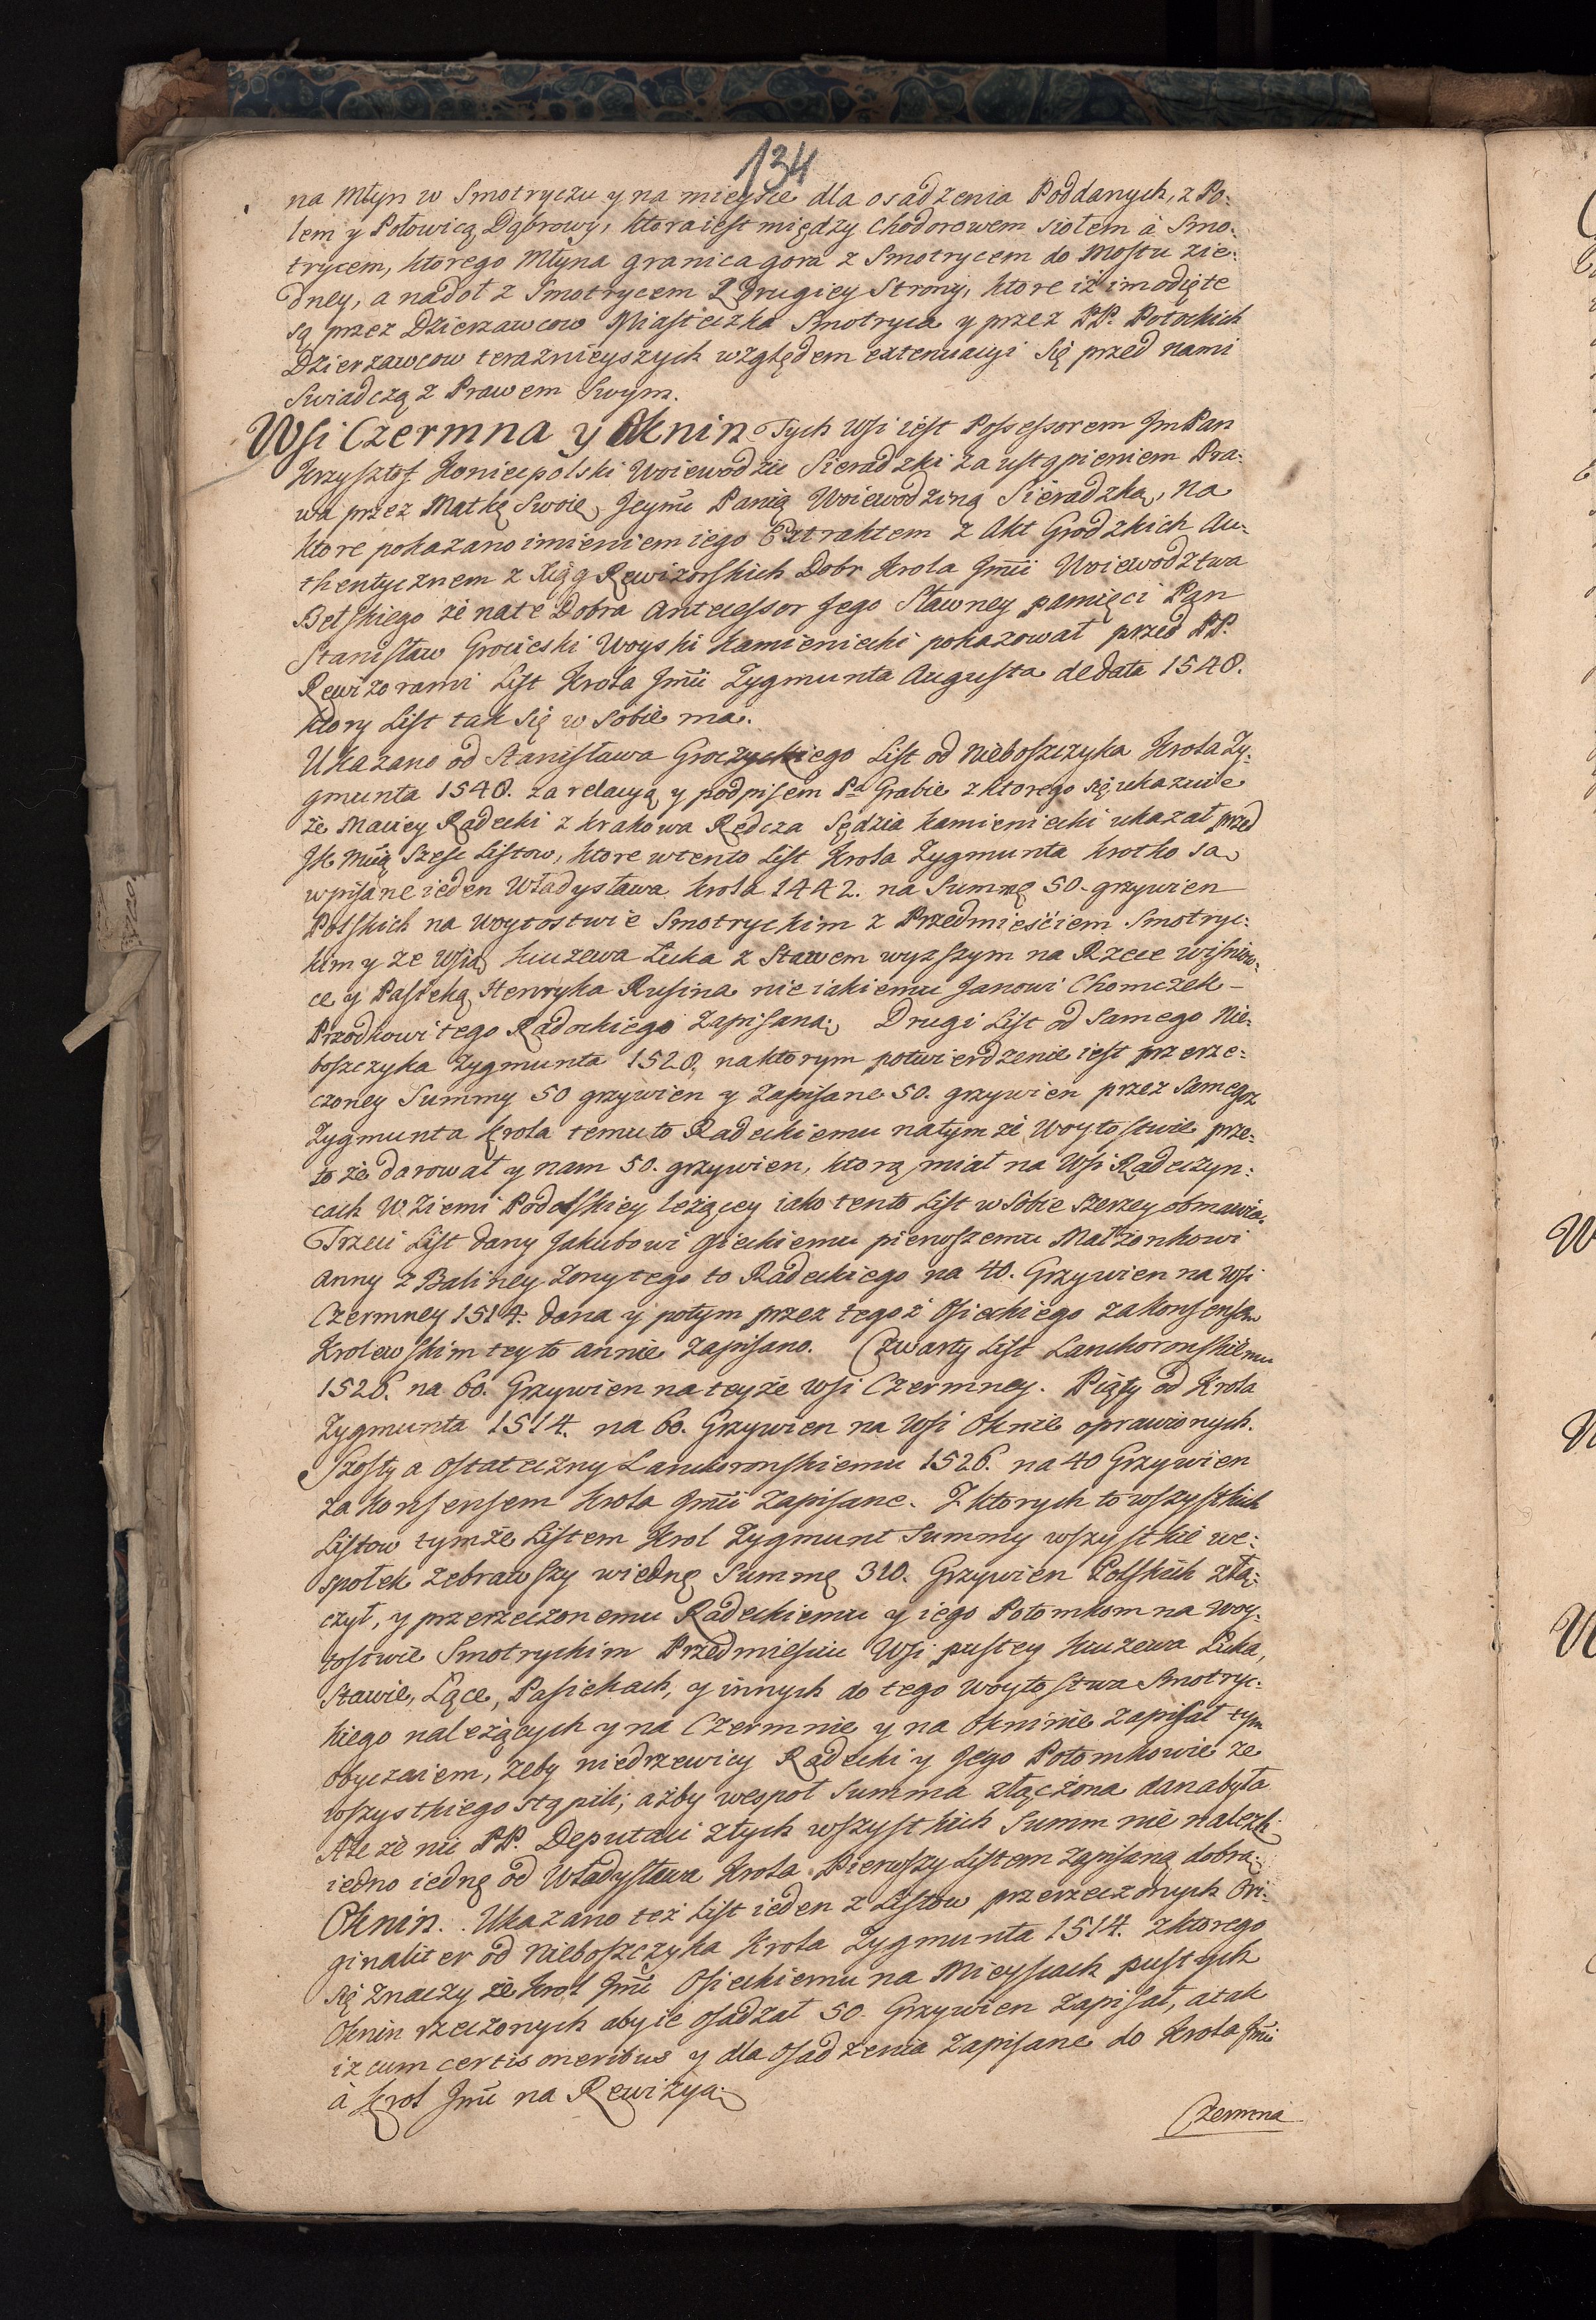 134
na Młyn w Smotryczu y na mieysce dla osadzenia Poddanych, z Po:
lem y Połowicą Dąbrowy, ktora iest między Chodorowem siołem à Smo:
trycem, ktorego Młyna granica gora z Smotrycem do Mostu zie:
dney, a nadoł z Smotrycem z drugiey Strony, ktore iż im odięte
są przez Dzierzawcow Miasteczka Smotryca y przez PP. Potockich
Dzierzawcow teraznieyszych względem extenuacyi się przed nami
Swiadczą z Prawem Swym.
Wsi Czermna y Oknin Tych Wsi iest Possessorem Jm Pan
Krzysztof Koniecpolski Woiewodzic Sieradzki za ustąpieniem Pra:
wa przez Matkę Swoię, Jeymć Panią Woiewodziną Sieradzką, na
ktore pokazano imieniem iego Extraktem z Akt Grodzkich Au:
thentycznem z Xiąg Rewizorskich Dobr Krola Jmći Woiewodztwa
Bełskiego że na te Dobra Antecessor Jego Sławney pamięci Pan
Stanisław Grocieski Woyski Kamieniecki pokazował przed PP.
Rewizorami List Krola Jmći Zygmunta Augusta de data 1548.
ktory List tak się w sobie ma.
Ukazano od Stanisława Groczyckiego List od Nieboszczyka Krola Zy:
gmunta 1548. za relacyą y podpisem Pa Grabie z ktorego się ukazuie
że Maciey Radecki z Krakowa Rędcza Sędzia Kamieniecki ukazał przed
JK Mcią Szesc Listow, ktore w tento List Krola Zygmunta krotko są
wpisane ieden Władysława Krola 1442. na Summę 50. grzywien
Polskich na Woytostwie Smotryckim z Przedmieściem Smotryc:
kim y ze Wsią Kuczewa Łuka z Stawem wyzszym na Rzece Wiśniow:
ce y Pasieką Henryka Rusina nieiakiemu Janowi Chomczek
Przodkowi tego Radeckiego Zapisana. Drugi List od Samego Nie:
boszczyka Zygmunta 1528. na ktorym potwierdzenie iest przerze:
czoney Summy 50 grzywien y Zapisane 50. grzywien przez Samegoz
Zygmunta Krola temuto Radeckiemu natymże Woytostwie prze:
to że darował y nam 50. grzywien, ktorą miał na Wsi Radeczyn:
cach W Ziemi Podolskiey leżącey iako tento List w Sobie szerzey obmawia.
Trzeci List dany Jakubowi Osieckiemu pierwszemu Małżonkowi
Anny z Baliney żony tego to Radeckiego na 40. Grzywien na Wsi
Czermney 1514. dana y potym przez tegoż Osieckiego za Konsensem
Krolewskim teyto annie Zapisano. Czwarty List Lanckoronskiemu
1526. na 60. Grzywien na teyże Wsi Czermney. Piąty od Krola
Zygmunta 1514. na 60. Grzywien na Wsi Oknie oprawionych.
Szosty a ostateczny Lanckoronskiemu 1526. na 40 Grzywien
za Konsensem Krola Jmći Zapisane. Z ktorych to wszystkich
Listow tymże Listem Krol Zygmunt Summy wszystkie we:
społek zebrawszy w iednę Summę 310. Grzywien Polskich złą:
czył, y przerzeczonemu Radeckiemu y iego Potomkom na Woy:
tostwie Smotryckim Przedmieściu Wsi pustey Kuczewa Łuka,
Stawie, Łące, Pasiekach, y innych do tego Woytostwa Smotryc:
kiego należących y na Czermnie y na Okninie Zapisał tym
obyczaiem, żeby niedrzewicy Radecki y Jego Potomkowie ze
wszystkiego stąpili; ażby wespoł Summa złączona dana była
Ale że nii PP. Deputaci z tych wszystkich Summ nie należli
iedno iednę od Władysława Krola Pierwszy Listem zapisaną dobrą.
Oknin.. Ukazano też List ieden z Listow przerzeczonych Ori:
ginaliter od Nieboszczyka Krola Zygmunta 1514. z ktorego
się znaczy że Krol Jmć Osieckiemu na Mieyscach pustych
Oknin rzeczonych aby ie osadzał 50. Grzywien Zapisał, a tak
iż cum certis oneribus y dla osadzenia Zapisane do Krola Jmći
à Krol Jmć na Rewizyą.
Czermna